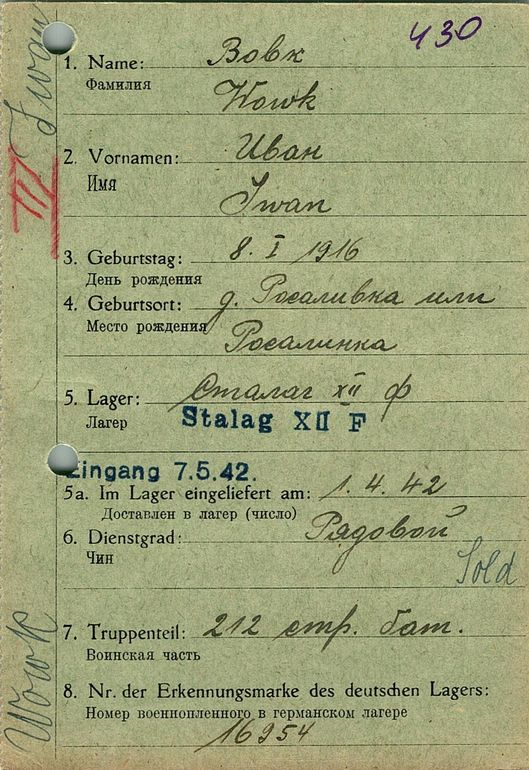 430
Iwan
III
1. Name: Вовк
Фамилия
Wowk
2. Vornamen: Иван
Имя
Iwan
3. Geburtstag: 8. I 1916
День рождения
4. Geburtsort: д. Росаливка или
Место рождения
Росалинка
5. Lager: Сталаг XII Ф
Лагер
Stalag XII F
Eingang 7.5.42.
5a. Im Lager eingeliefert am: 1. 4. 42
Доставлен в лагер (число)
6. Dienstgrad: Рядовой
Чин
Sold
7. Truppenteil: 212 стр. бат.
Воинская часть
8. Nr. der Erkennungsmarke des deutschen Lagers:
Номер военнопленного в германском лагере
16954
Wowk